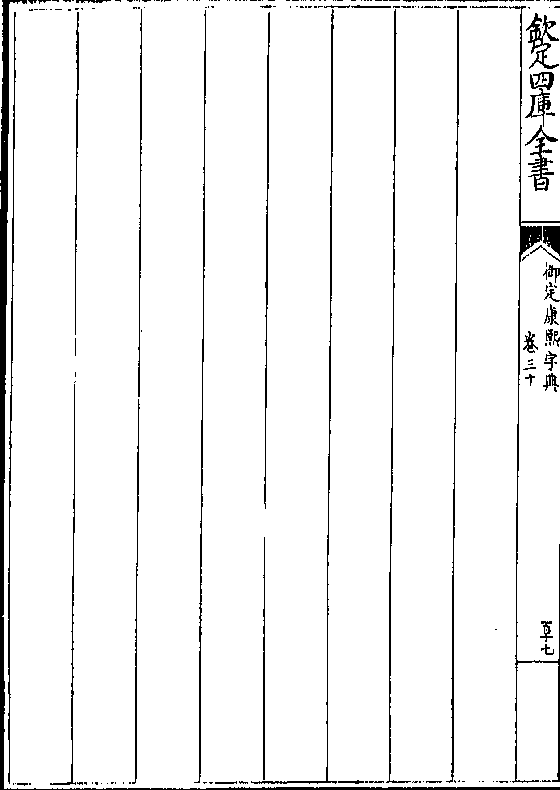 欽定四庫全書
御定康熙字典
卷三十